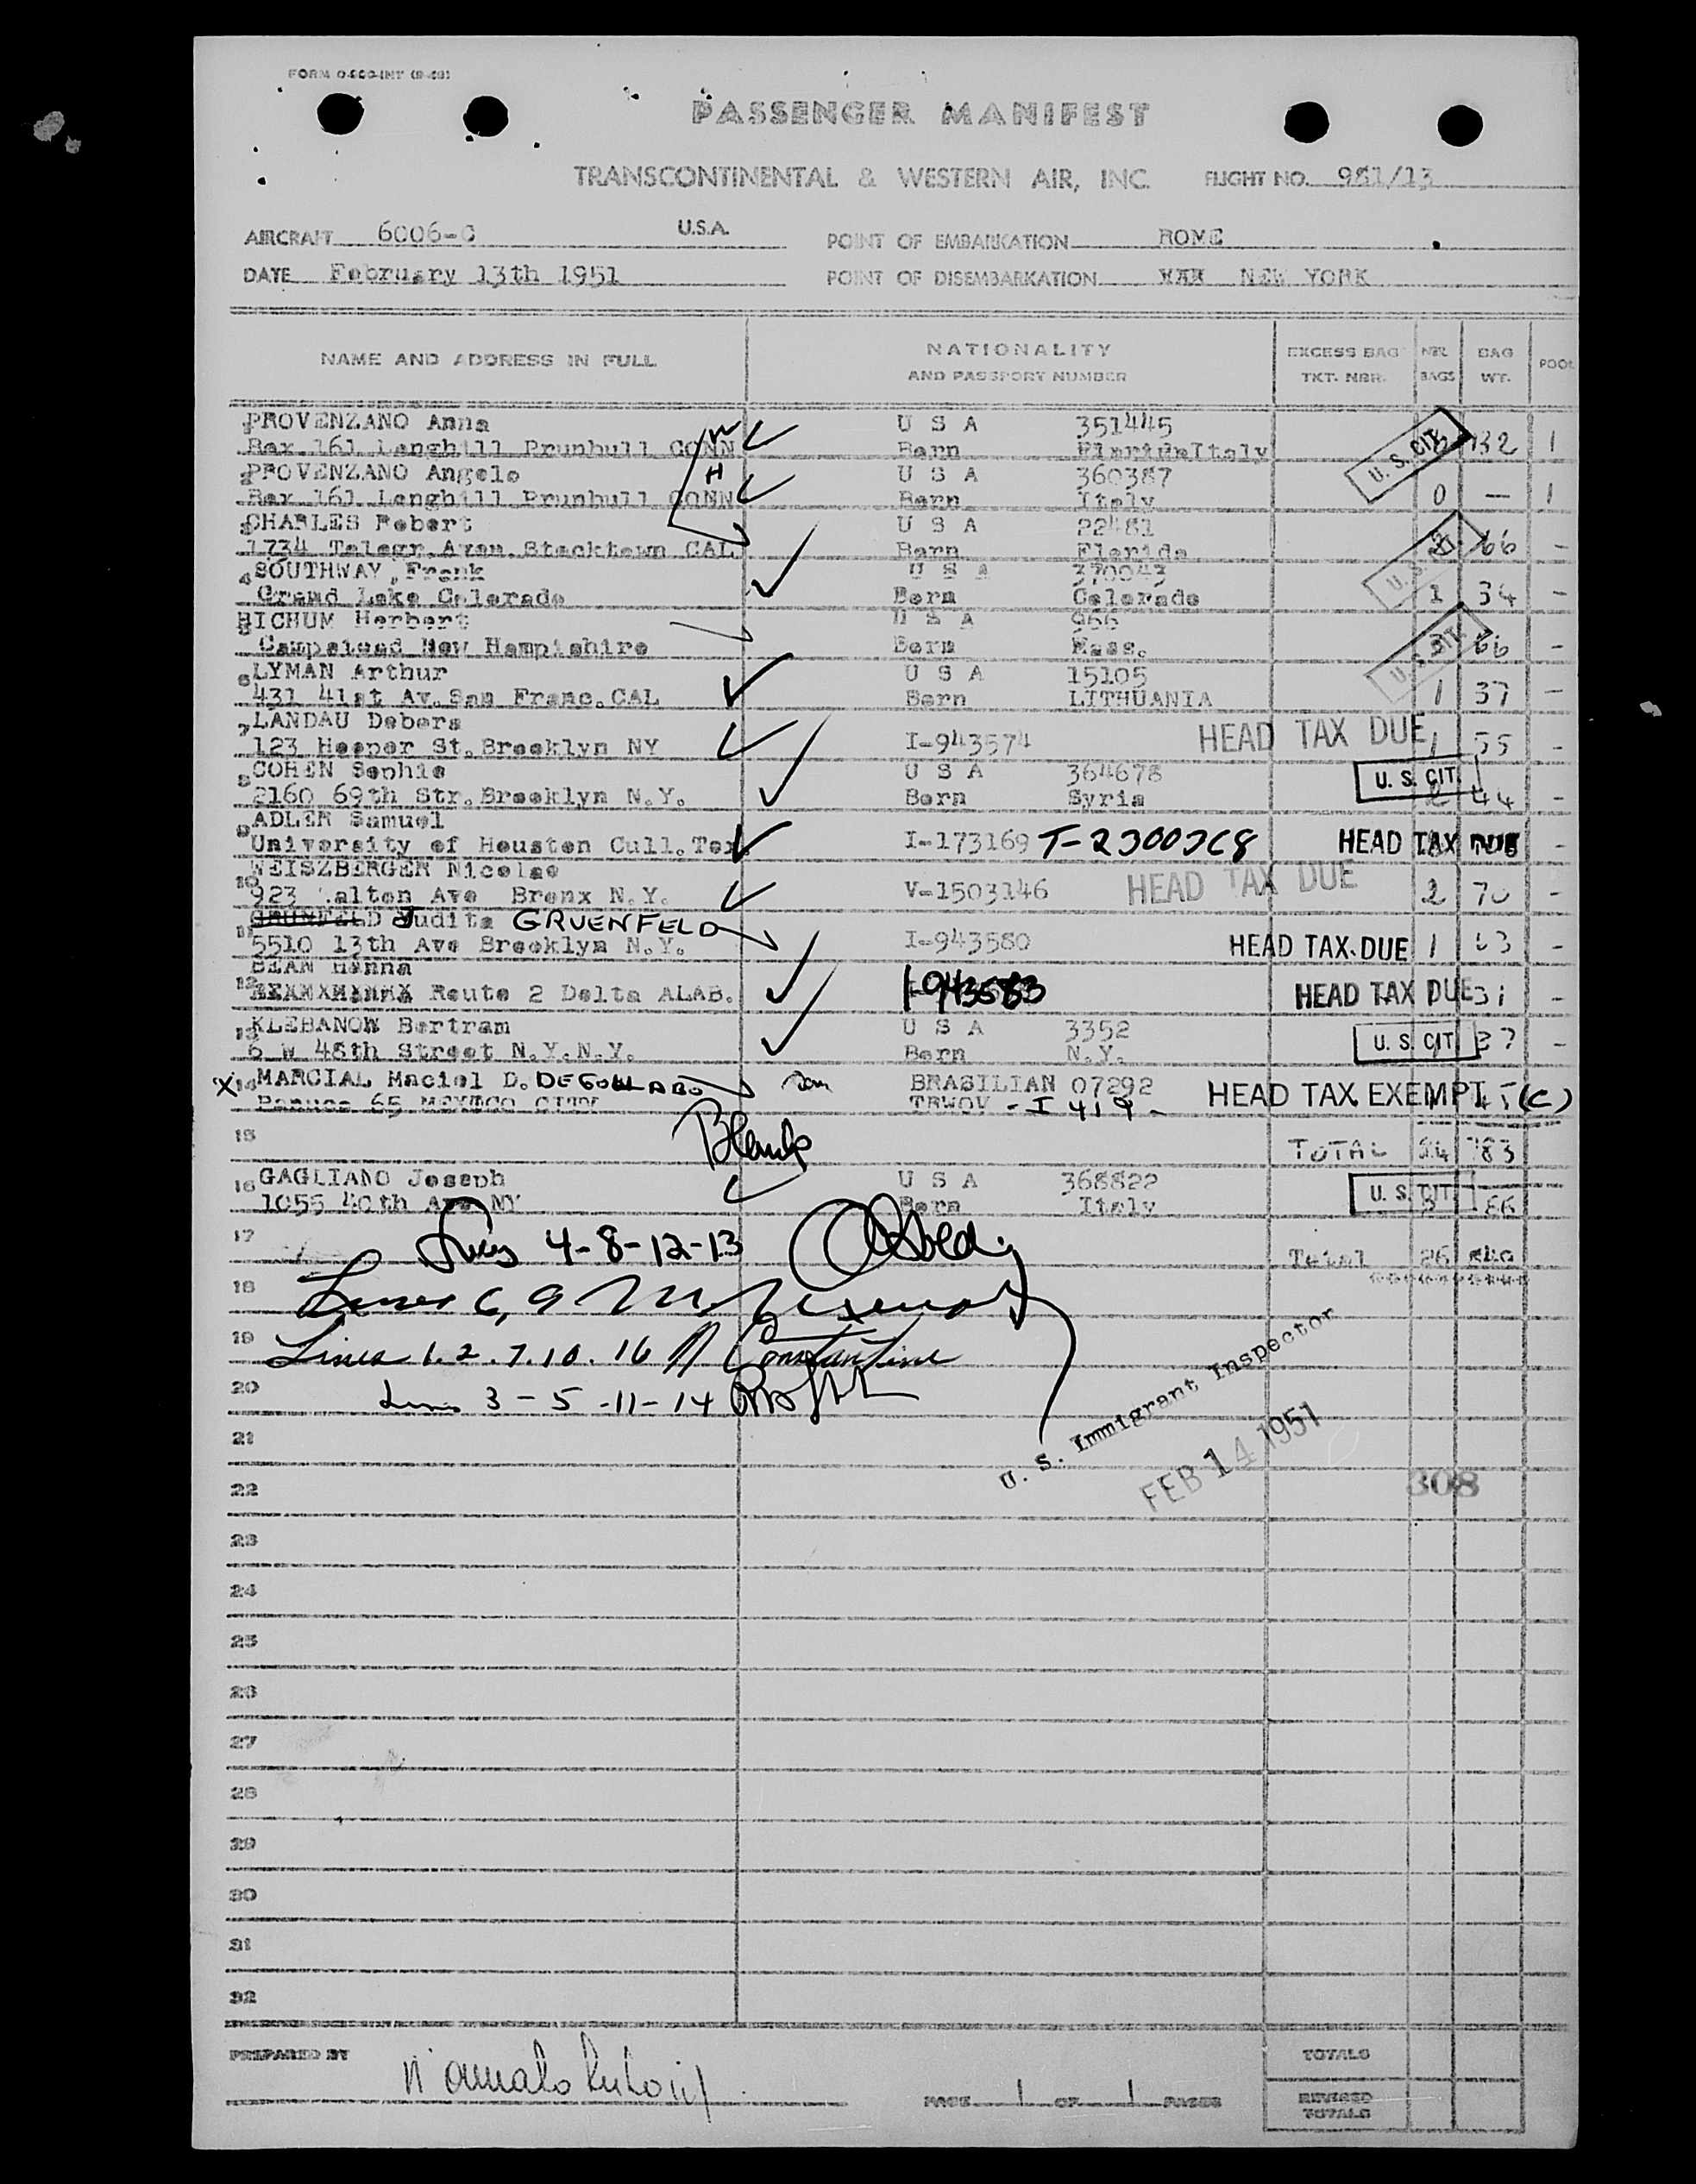 PASSENGER MANIFEST
TRANSCONTINENTAL & WESTERN AIR, INC. FLIGHT NO. 981/13
AIRCRAFT 6006-C U.S.A. POINT OF EMBARKATION ROME
DATE February 13th 1951 POINT OF DISEMBARKATION NEW YORK
NAME AND ADDRESS IN FULL NATIONALITY AND PASSPORT NUMBER EXCESS BAG TKT. NBR. NBR. BAGS BAG WT. POOL
1 PROVENZANO Anna W U S A 351445
Box 161 Longhill Prunbull CONN Born Italy U. S. CIT. 132 1
2 PROVENZANO Angelo H U S A 360387
Box 161 Longhill Prunbull CONN Born Italy 0 — 1
3 CHARLES Robert U S A 22481
1734 Telegr. Aven. Stocktown CAL Born Florida U. S. CIT. 66 -
4 SOUTHWAY, Frank U S A 370043
Grand Lake Colorado Born Colorado 1 34 -
5 BICHUM Herbert U S A 966
Campstead New Hampishire Born Mass. U. S. CIT. 66 -
6 LYMAN Arthur U S A 15105
431 41st Av. San Franc. CAL Born LITHUANIA 1 37 -
7 LANDAU Debora
123 Hooper St. Brooklyn NY I-943574 HEAD TAX DUE 1 55 -
8 COHEN Sophie U S A 364678
2160 69th Str. Brooklyn N.Y. Born Syria U. S. CIT. 2 44 -
9 ADLER Samuel
University of Houston Cull. Tex. I-173169 T-2300368 HEAD TAX DUE -
10 WEISZBERGER Nicolae
923 Walton Ave Bronx N.Y. V-1503146 HEAD TAX DUE 2 70 -
11 GRUNFELD Judita GRUENFELD
5510 13th Ave Brooklyn N.Y. I-943580 HEAD TAX DUE 1 63 -
12 BEAN Hanna
Route 2 Delta ALAB. I-943583 HEAD TAX DUE 31 -
13 KLEBANOW Bertram U S A 3352
6 W 48th Street N.Y.N.Y. Born N.Y. U. S. CIT. 37 -
X 14 MARCIAL Maciel D. DEGOLLABO BRASILIAN 07292
65 MEXICO CITY TRWOV - I 419 - HEAD TAX EXEMPT (C)
15 Blank TOTAL 24 783
16 GAGLIANO Joseph U S A 368822
1055 40th Ave NY Born Italy U. S. CIT. 66
17 Lines 4-8-12-13 Total 26
18 Lines 6, 9
19 Lines 1.2.7.10.16 Constantine
20 Lines 3-5-11-14
U. S. Immigrant Inspector
21
FEB 14 1951
22 308
23
24
25
26
27
28
29
30
31
32
PREPARED BY
PAGE 1 OF 1 PAGES
TOTALS
REVISED TOTALS